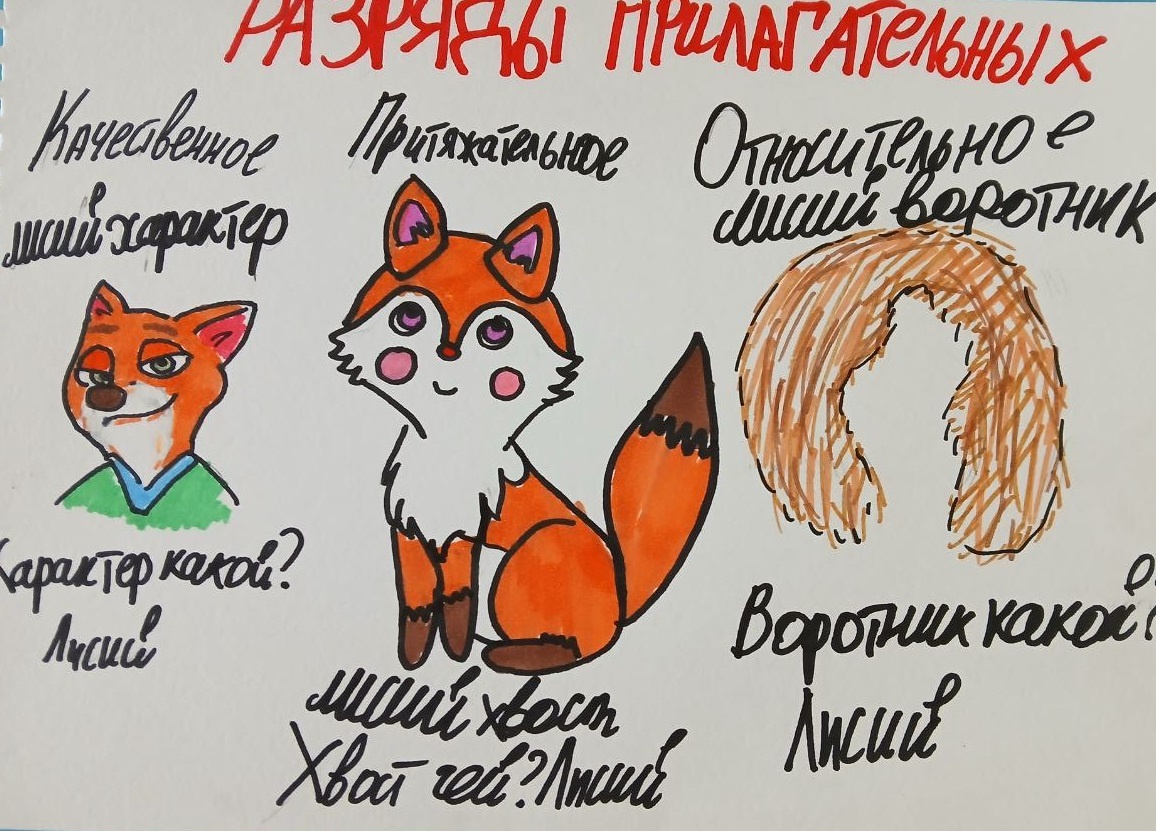 РАЗРЯДЫ ПРИЛАГАТЕЛЬНЫХ
Качественное
лисий характер
Характер какой?
Лисий
Притяжательное
лисий хвост
Хвост чей? Лисий
Относительное
лисий воротник
Воротник какой?
Лисий